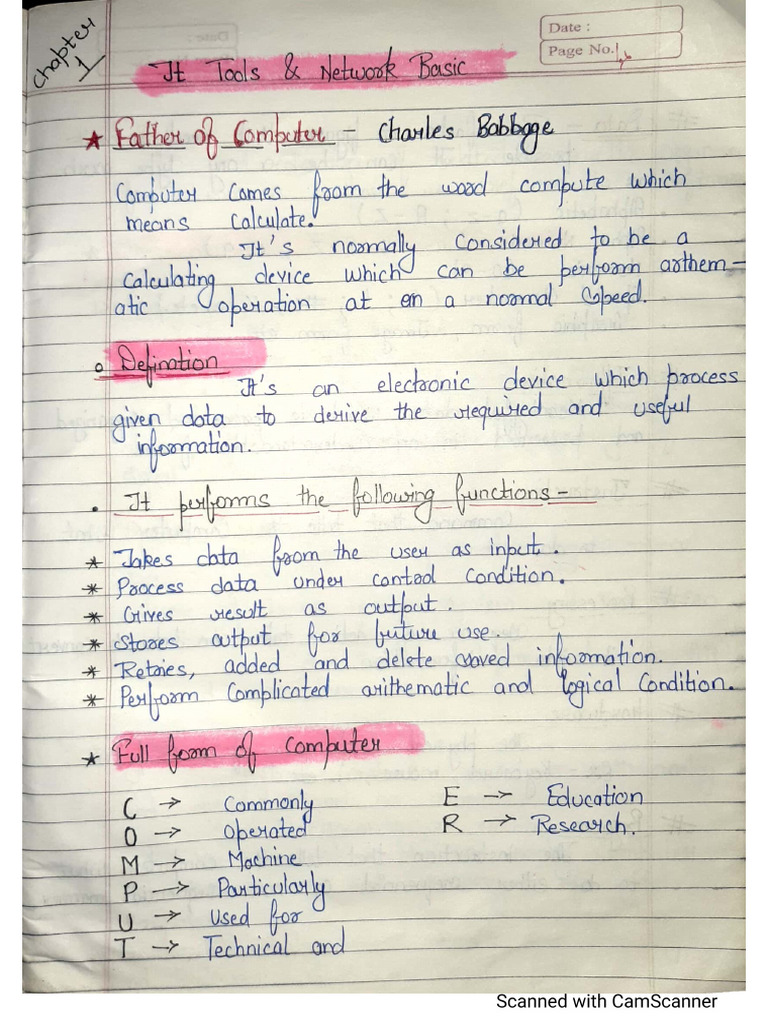 Chapter
1
Date :
Page No. 1,
It Tools & Network Basic
* Father of Computer - Charles Babbage
Computer comes from the word compute which
means calculate.
It's normally considered to be a
calculating device which can be perform arthem-
atic operation at a normal speed.
Defination
It's an electronic device which process
given data to derive the required and useful
information.
• It performs the following functions -
* Takes data from the user as input.
* Process data under control condition.
* Gives result as output.
* Stores output for future use.
* Retries, added and delete saved information.
* Perform complicated arithematic and logical condition.
* Full form of computer
C → Commonly
O → Operated
M → Machine
P → Particularly
U → Used for
T → Technical and
E → Education
R → Research.
Scanned with CamScanner